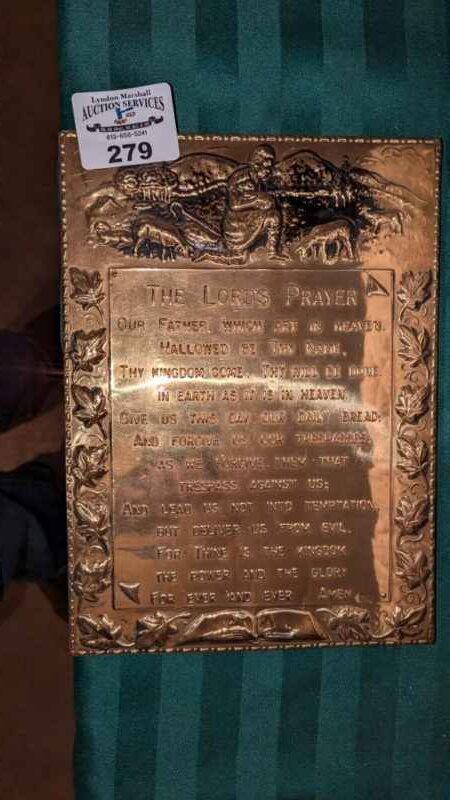 Lyndon Marshall
AUCTION SERVICES
279
THE LORD'S PRAYER
OUR FATHER, WHICH ART IN HEAVEN,
HALLOWED BE THY NAME,
THY KINGDOM COME, THY WILL BE DONE
IN EARTH AS IT IS IN HEAVEN,
GIVE US THIS DAY OUR DAILY BREAD;
AND FORGIVE US OUR TRESPASSES,
AS WE FORGIVE THEM THAT
TRESPASS AGAINST US;
AND LEAD US NOT INTO TEMPTATION,
BUT DELIVER US FROM EVIL,
FOR THINE IS THE KINGDOM
THE POWER AND THE GLORY
FOR EVER AND EVER AMEN